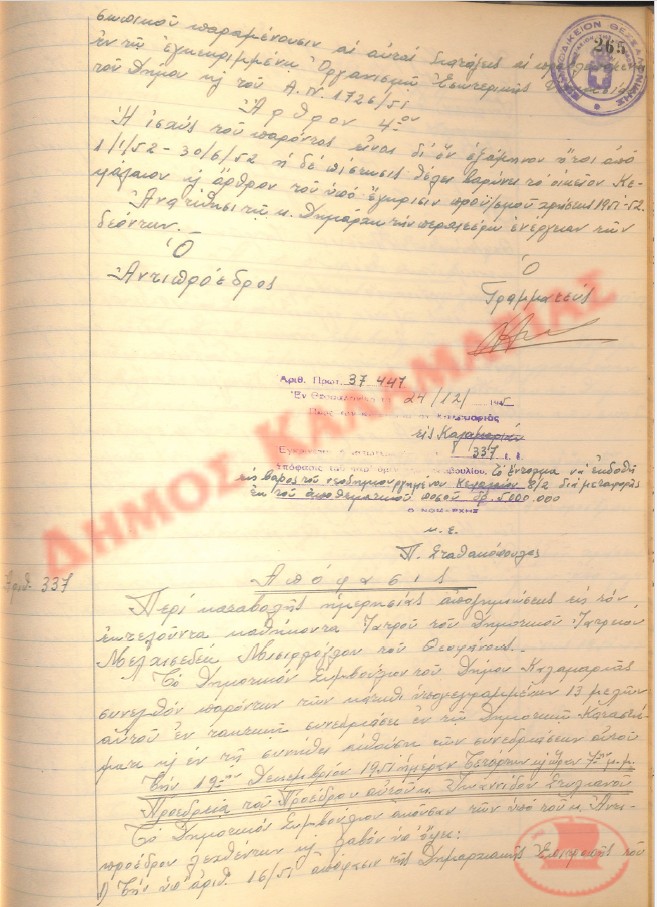 σωπικοῦ παραμένουσιν αἱ αὐταὶ διατάξεις αἱ
ἐν τῇ ἐγκεκριμμένῃ Ὀργανισμῷ Ἐσωτερικῆς
τοῦ Δήμου κ τοῦ Α.Ν. 1726/51
Ἄρθρον 4ον
Ἡ ἰσχὺς τοῦ παρόντος εἶναι δι' ὃν ἑξάμηνον ἤτοι ἀπὸ
1/1/52 - 30/6/52 ἡ δὲ πίστωσις θέλει βαρύνει τὸ οἰκεῖον Κε-
φάλαιον κ ἄρθρον τοῦ ὑπὸ ἔγκρισιν προϋ/σμοῦ χρήσεως 1951-52.
Ἀνατίθησι τῷ κ. Δημάρχῳ τὴν περαιτέρω ἐνέργειαν τῶν
δεόντων.
Ὁ
Ἀντιπρόεδρος
Ὁ
Γραμματεὺς
265
ΔΗΜΟΣ ΚΑΛΑΜΑΡΙΑΣ
Ἀριθ. Πρωτ. 37 447
Ἐν Θεσσαλονίκῃ τῇ 24/12/ 195
εἰς Καλαμαριὰν
337
τὸ ἔνταλμα νὰ ἐκδοθῇ
εἰς βάρος τοῦ νεοδημιουργημένου Κεφαλαίου 8/2 διὰ μεταφορᾶς
ἐκ τοῦ ἀποθεματικοῦ ποσοῦ δρ. 5.000.000
Ο ΝΟΜΑΡΧΗΣ
κ.ε.
Π. Σταθακόπουλος
Ἀριθ. 337
Ἀπόφασις
Περὶ καταβολῆς ἡμερησίας ἀποζημιώσεως εἰς τὸν
ἐκτελοῦντα καθήκοντα Ἰατροῦ τοῦ Δημοτικοῦ Ἰατρείου
Μελχισεδὲκ τοῦ Θεοφάνους.
Τὸ Δημοτικὸν Συμβούλιον τοῦ Δήμου Καλαμαριᾶς
συνελθὸν παρόντων τῶν κάτωθι ὑπογεγραμμένων 13 μελῶν
αὐτοῦ ἐν τακτικῇ συνεδριάσει ἐν τῷ Δημοτικῷ Καταστή-
ματι κ ἐν τῇ συνήθει αἰθούσῃ τῶν συνεδριάσεων αὐτοῦ
Τὴν 19ην Δεκεμβρίου 1951 ἡμέραν Τετάρτην κ ὥραν 7ην μ.μ.
Προεδρίᾳ τοῦ Προέδρου αὐτοῦ κ. Στυλιανοῦ
Τὸ Δημοτικὸν Συμβούλιον ἀκοῦσαν τῶν ὑπὸ τοῦ κ. Ἀντι-
προέδρου λεχθέντων κ λαβὸν ὑπ' ὄψει:
1) Τὴν ὑπ' ἀριθ. 16/51 ἀπόφασιν τῆς Δημαρχιακῆς Ἐπιτροπῆς τοῦ